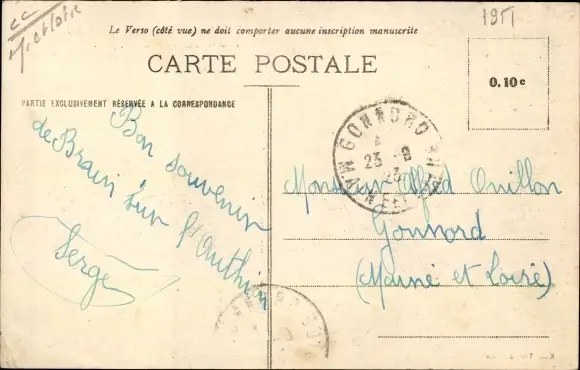 cc
M et Loire
1951
Le Verso (côté vue) ne doit comporter aucune inscription manuscrite
CARTE POSTALE
0.10 c
PARTIE EXCLUSIVEMENT RÉSERVÉE A LA CORRESPONDANCE
Bon souvenir
de Brain sur l'Authion
Serge
GONNORD
23 - 9
23
Monsieur Alfred Ouillon
Gonnord
(Maine et Loire)